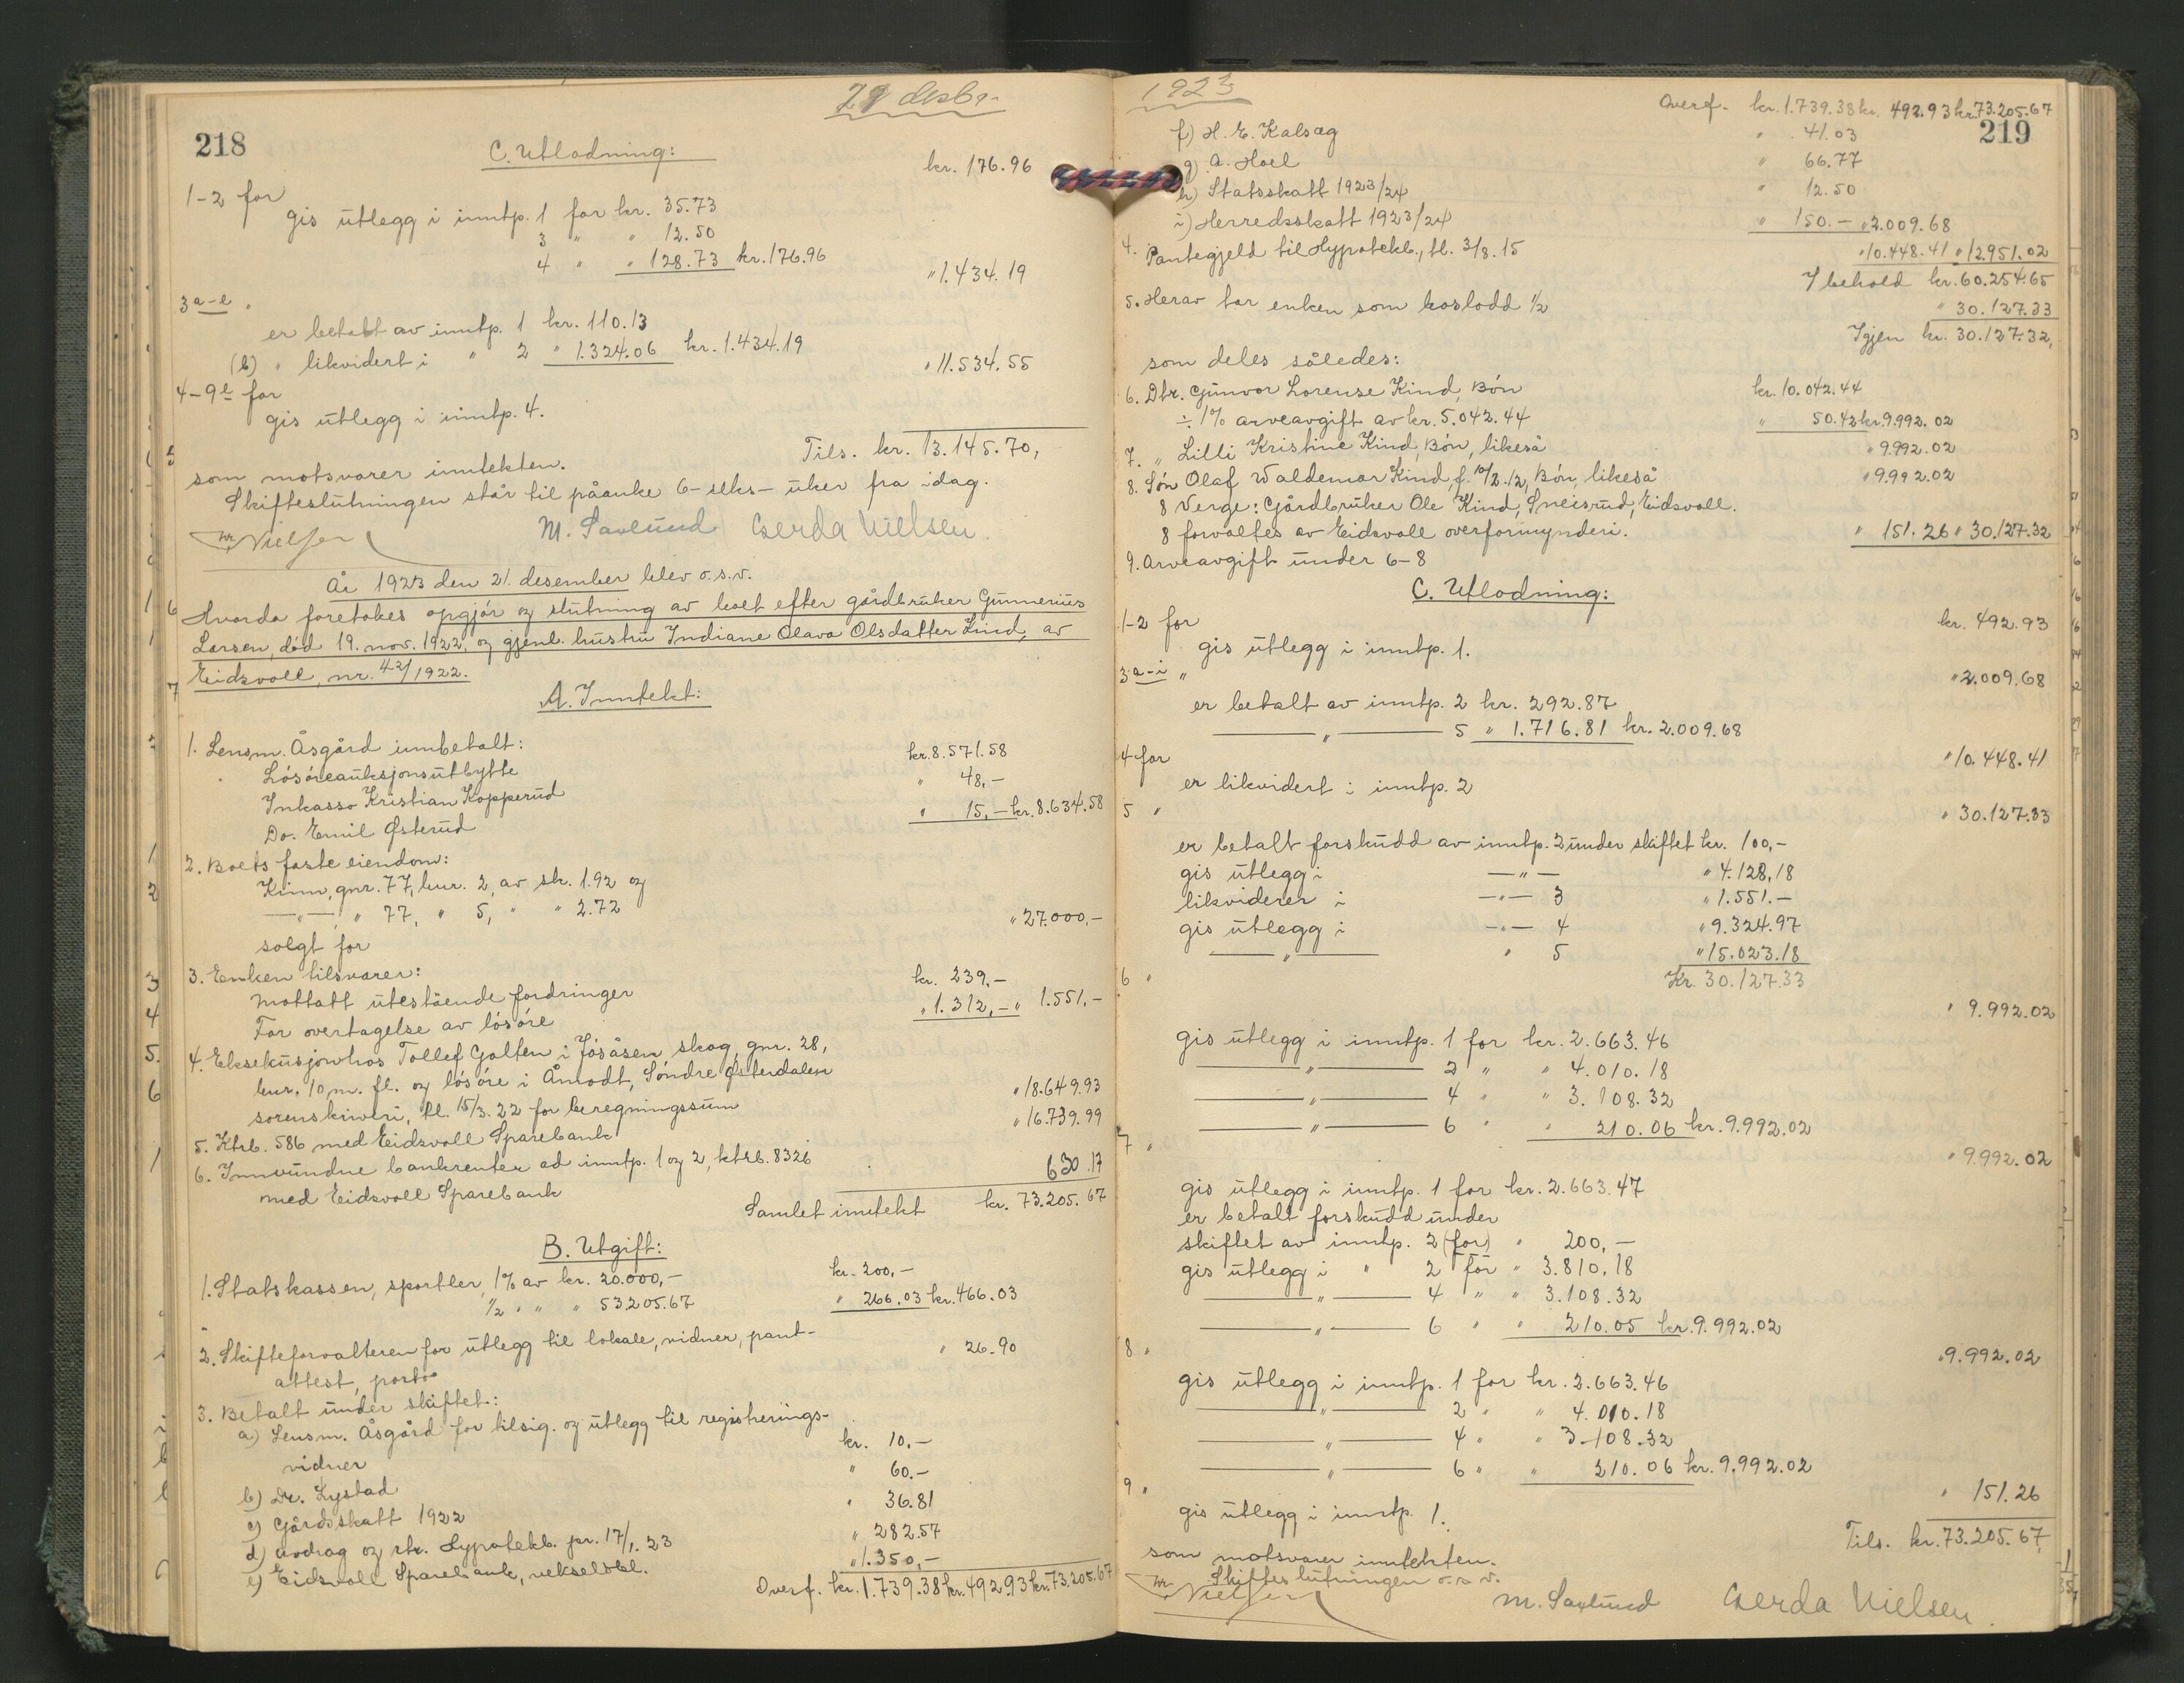 21 desbr.
218
C. Utlodning:
1-2 for kr. 176.96
gis utlegg i inntp. 1 for kr. 35.73
3 " " 12.50
4 " " 128.73 kr. 176.96
3 a-e " " 1.434.19
er betalt av inntp. 1 kr. 110.13
(b) " likvidert i " 2 " 1.324.06 kr. 1.434.19
4-9 for " 11.534.55
gis utlegg i inntp. 4.
Tils. kr. 13.145.70,
som motsvarer inntekten.
Skifteslutningen står til påanke 6-seks- uker fra idag.
Nielsen M. Saxlund Gerda Nielsen.
År 1923 den 21. desember blev o.s.v.
Hvorda foretokes opgjör og slutning av boet efter gårdbruker Gunnerius
Larsen, död 19. nov. 1922, og gjenl. hustru Indiane Olava Olsdatter Kind, av
Eidsvoll, nr. 42/1922.
A. Inntekt:
1. Lensm. Åsgård innbetalt:
Lösöreauksjonsutbytte kr. 8.571.58
Inkasso Kristian Kopperud " 48,-
Do. Emil Østerud " 15,- kr. 8.634.58
2. Boets faste eiendom:
Kinn, gnr. 77, bnr. 2, av sk. 1.92 og
—"— , " 77, " 5, " " 2.72
solgt for " 27.000,-
3. Enken tilsvarer:
Mottatt utestående fordringer kr. 239.-
For overtagelse av lösöre " 1.312,- " 1.551,-
4. Eksekusjon hos Tollef Galten i Jösåsen skog, gnr. 28,
bnr. 10 m. fl. og lösöre i Åmodt, Söndre Østerdalen
sorenskriveri, tl. 15/3. 22 for beregningssum " 18.649.93
5. Ktrb. 586 med Eidsvoll Sparebank " 16.739.99
6. Innvundne bankrenter ad inntp. 1 og 2, ktrb. 8326
med Eidsvoll Sparebank 630.17
Samlet inntekt kr. 73.205.67
B. Utgift:
1. Statskassen, sportler, 1% av kr. 20.000,- kr. 200,-
1/2 " " " 53205.67 " 266.03 kr. 466.03
2. Skifteforvalteren for utlegg til lokale, vidner, pant-
attest, porto " 26.90
3. Betalt under skiftet:
a) Lensm. Åsgård for tilsig. og utlegg til registrerings-
vidner kr. 10.-
b) Dr. Kystad " 60.-
c) Gårdsskatt 1922 " 36.81
d) avdrag og rtr. Hypotekb. pr. 17/1. 23 " 282.57
e) Eidsvoll Sparebank, vekselobl. " 1.350,-
Overf. kr. 1.739.38 kr. 492.93 kr. 73.205.67
1923
219
Overf. kr. 1.739.38 kr. 492.93 kr. 73.205.67
f) H. E. Kalsæg " 41.03
g) A. Hoel " 66.77
h) Statsskatt 1923/24 " 12.50
i) Herredsskatt 1923/24 " 150.- " 2.009.68
4. Pantegjeld til Hypotekb., tl. 3/8. 15 " 10.448.41 " 12.951.02
I behold kr. 60.254.65
5. Herav har enken som boslodd 1/2 " 30.127.33
Igjen kr. 30.127.32,
som deles således:
6. Dtr. Gunvor Lorense Kind, Bön kr. 10.042.44
÷ 1% arveavgift av kr. 5.042.44 " 50.42 kr. 9.992.02
7. " Lilli Kristine Kind, Bön, likeså " 9.992.02
8. Sön Olaf Waldemar Kind, f. 10/2. 12, Bön, likeså " 9.992.02
8 Verge: Gårdbruker Ole Kind, Sneisrud, Eidsvoll.
8 forvaltes av Eidsvoll overformynderi.
9. Arveavgift under 6-8 " 151.26 " 30.127.32
C. Utlodning:
1-2 for kr. 492.93
gis utlegg i inntp. 1.
3 a-i " " 2.009.68
er betalt av inntp. 2 kr. 292.87
—"— 5 " 1.716.81 kr. 2.009.68
4 for " 10.448.41
er likvidert i inntp. 2
5 " " 30.127.33
er betalt forskudd av inntp. 2 under skiftet kr. 100,-
gis utlegg i —"— " 4.128,18
likviderer i —"— 3 " 1.551.-
gis utlegg i —"— 4 " 9.324.97
—"— " 5 " 15.023.18
Kr. 30.127.33
6 " " 9.992.02
gis utlegg i inntp. 1 for kr. 2.663.46
—"— 2 " " 4.010.18
—"— 4 " " 3.108.32
—"— 6 " " 210.06 kr. 9.992.02
7 " " 9.992.02
gis utlegg i inntp. 1 for kr. 2.663.47
er betalt forskudd under
skiftet av inntp. 2 (for) " 200,-
gis utlegg i " 2 for " 3.810.18
—"— 4 " " 3.108.32
—"— 6 " " 210.05 kr. 9.992.02
8 " " 9.992.02
gis utlegg i inntp. 1 for kr. 2.663.46
—"— 2 " " 4.010.18
—"— 4 " " 3.108.32
—"— 6 " " 210.06 kr. 9.992.02
9 " " 151.26
gis utlegg i inntp. 1.
Tils. kr. 73.205.67,
som motsvarer inntekten.
Skifteslutningen o.s.v.
Nielsen M. Saxlund Gerda Nielsen.